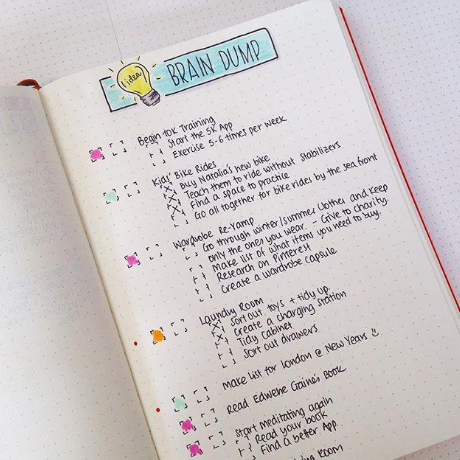 idea
BRAIN DUMP
Begin 10K Training
Start the 5K App
Exercise 5-6 times per week
Kids' Bike Rides
Buy Natalia's new bike
Teach them to ride without Stabilizers
Find a space to practice
Go all together for bike rides by the sea front
Wardrobe Re-Vamp
Go through winter/summer Clothes and keep
only the ones you wear. - Give to charity.
Make list of what items you need to buy.
Research on Pinterest
Create a wardrobe capsule.
Laundry Room
Sort out toys + tidy up.
Create a charging station
Tidy cabinet
Sort out drawers
Make list for London @ New Years
Read Edwene Gaine's Book
Start meditating again
Read your book
Find a better App.
Room